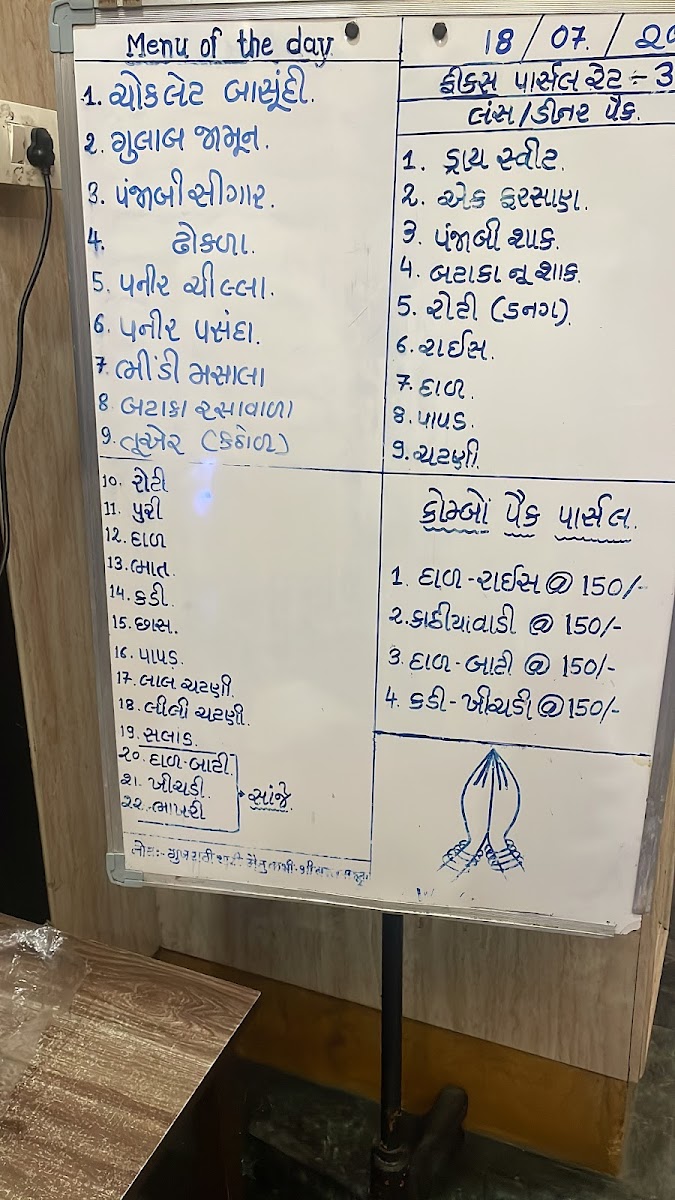 Menu of the day
1. ચોકલેટ બાસૂંદી.
2. ગુલાબ જામૂન.
3. પંજાબી સીગાર.
4. ઢોકળા.
5. પનીર ચીલ્લા.
6. પનીર પસંદા.
7. ભીંડી મસાલા
8. બટાકા રસાવાળા
9. તૂએર (કઠોળ)
10. રોટી
11. પુરી
12. દાળ
13. ભાત.
14. કડી.
15. છાસ.
16. પાપડ.
17. લાલ ચટણી.
18. લીલી ચટણી.
19. સલાડ.
૨૦. દાળ-બાટી.
૨૧. ખીચડી.
૨૨. ભાખરી
સાંજે.
18/07.
ફીક્સ પાર્સલ રેટ ÷ 3
લંસ/ડીનર પૈક.
1. ડ્રાય સ્વીટ.
2. એક ફરસાણ.
3. પંજાબી શાક.
4. બટાકા નૂ શાક.
5. રોટી (૬નગ).
6. રાઈસ.
7. દાળ.
8. પાપડ.
9. ચટણી.
કોમ્બોં પૈક પાર્સલ.
1. દાળ-રાઈસ @ 150/-
2. કાઠીયાવાડી @ 150/-
3. દાળ-બાટી @ 150/-
4. કડી-ખીચડી @ 150/-